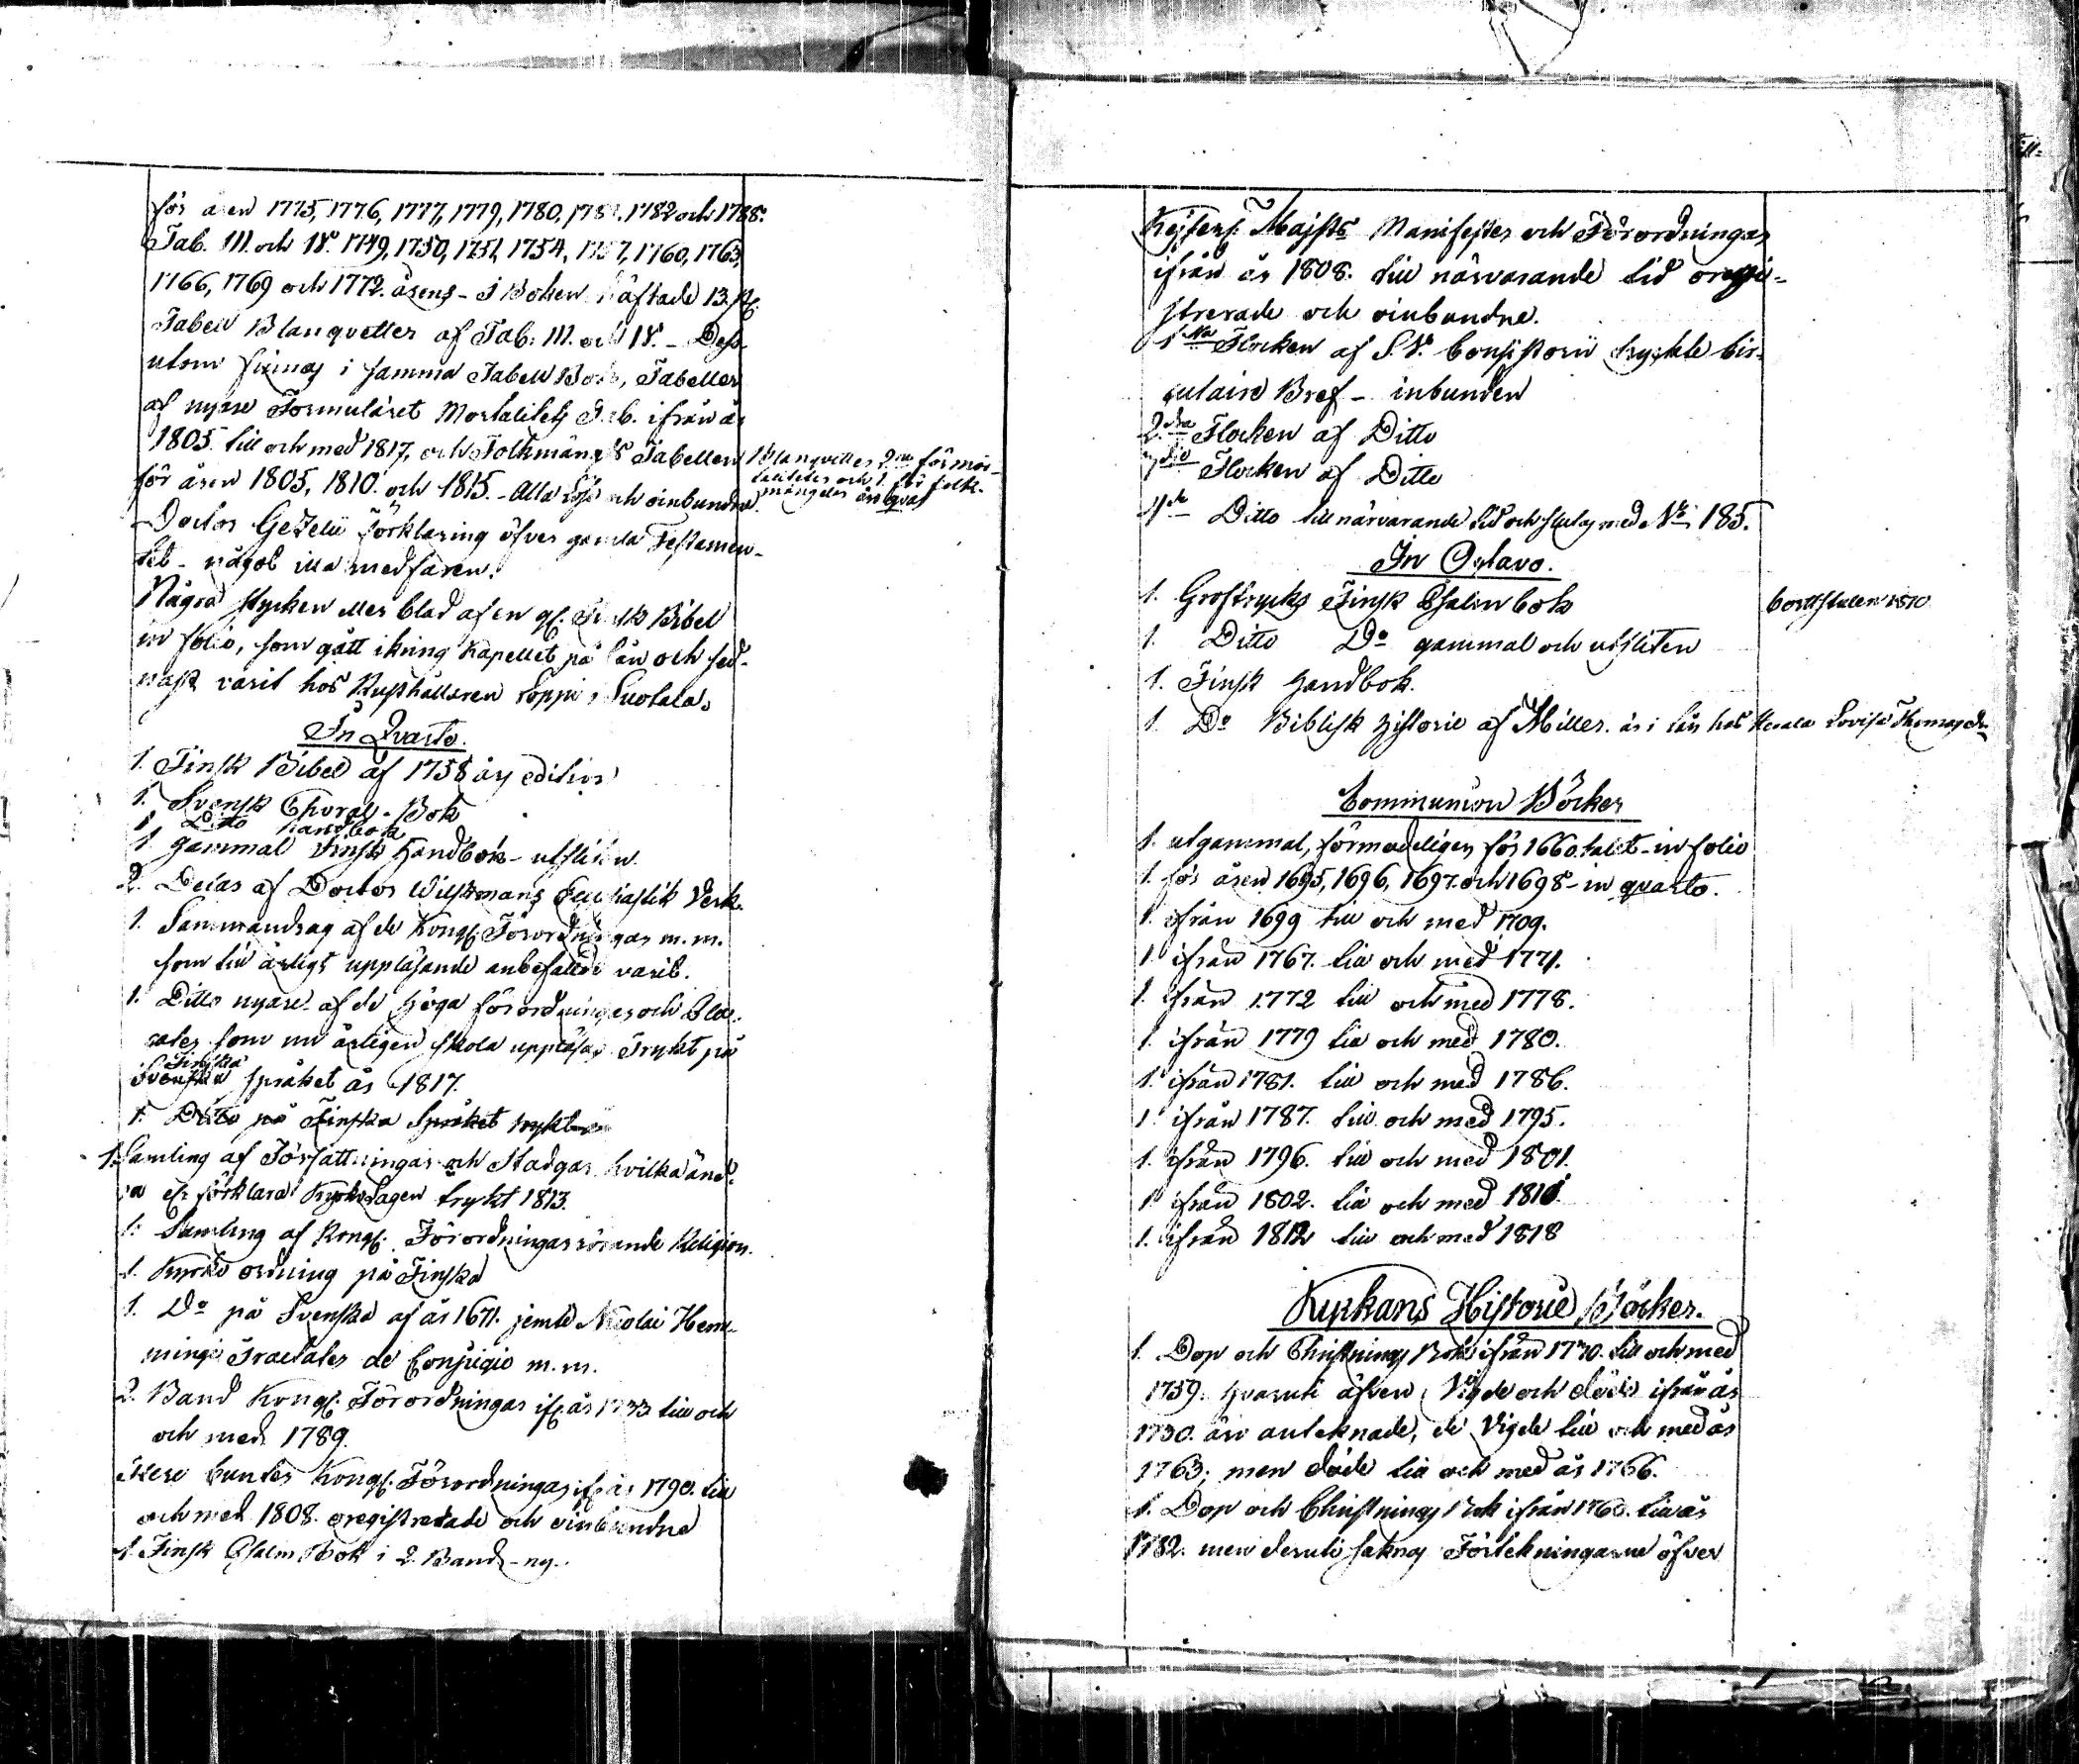 för åren 1775, 1776, 1777, 1779, 1780, 178 . 1782 och 1788.
Tab. III. och IV. 1749, 1750, 1751, 1754, 1757, 1760, 1763,
1766, 1769 och 1772. årens - I Boken häftade 13. st.
Tabell Blanquetter af Tab. III. och IV. - Dess-
utom finnas i samma Tabell Bok, Tabeller
af nyare Formuläret Mortalitets Tab. ifrån år
1805. till och med 1817, och Folkmängds Tabellen
för åren 1805, 1810. och 1815. - Alla löse och oinbundne.
Blanquetter 2ne för mor-
taliteten och 1. för folk-
mängden äro qvar
Doctor Gezelii Förklaring öfver gamla Testamen-
tet - något illa medfaren.
Några stycken eller blad af en gl. Finsk Bibel
in folio, som gått ikring Kapellet på lån och sed-
nast varit hos Rusthållaren Soppi i Suotala.
In Qvarto.
1. Finsk Bibel af 1758 års edition
1. Svensk Choral-Bok
1 Ditto handbok
1. gammal Finsk Handbok - utsliten
2. Delar af Doctor Wilskmans Ecclesiastik Verk.
1. Sammandrag af de Kongl. Förordningar m. m.
som till årligt uppläsande anbefallde varit.
1. Ditto nyare af de höga förordningar och Pla-
cater som nu årligen skola uppläsas Trykt på
Finska
Svenska språket år 1817.
1. Ditto på Finska Språket trykt
1. Samling af Författningar och Stadgar hvilka änd-
ra el. förklara KyrkoLagen trykt 1813.
1. Samling af Kongl. Förordningar rörande Religion.
1. Kyrko ordning på Finska
1. Do på Svenska af år 1671. jemte Nicolai Hem-
mingi Tractater de Conjugio m. m.
2. Band Kongl. Förordningar ifr. år 1733 till och
och med 1789.
Flere buntar Kongl. Förordningar ifr. år 1790. till
och med 1808. oregistrerade och oinbundne
1. Finsk Psalm Bok i 2. Band - ny.
Kejserl. Majsts Manifester och Förordningar
ifrån år 1808. till närvarande tid oregi-
strerade och oinbundne.
1sta Flocken af S. V. Consistorii tryckte Cir-
culaire Bref - inbunden
2dra Flocken af Ditto
3dje Flocken af Ditto
4de Ditto till närvarande tid och slutas med No 185.
In Octavo.
1. Groftrycks Finsk Psalmbok
bortstulen 1810
1. Ditto Do gammal och utsliten
1. Finsk Handbok.
1. Do Biblisk Historie af Miller. är i lån hos Lovisa Thomasdr
Communion Böcker
1. utgammal, förmodeligen för 1660.talet - in folio
1. för åren 1695, 1696, 1697. och 1698 - in qvarto.
1. ifrån 1699 till och med 1709.
1. ifrån 1767. till och med 1771.
1. ifrån 1772 till och med 1778.
1. ifrån 1779 till och med 1780.
1. ifrån 1781. till och med 1786.
1. ifrån 1787. till och med 1795.
1. ifrån 1796. till och med 1801.
1. ifrån 1802. till och med 1811
1. ifrån 1812 till och med 1818
Kyrkans Historie Böcker.
1. Dop och Christnings Bok ifrån 1730. till och med
1759. hvaruti äfven Vigde och döde ifrån år
1730. äro anteknade, de Vigde till och med år
1763; men döde till och med år 1766.
1. Dop och Christnings Bok ifrån 1760. till år
1782. men deruti saknas Förtekningarne öfver